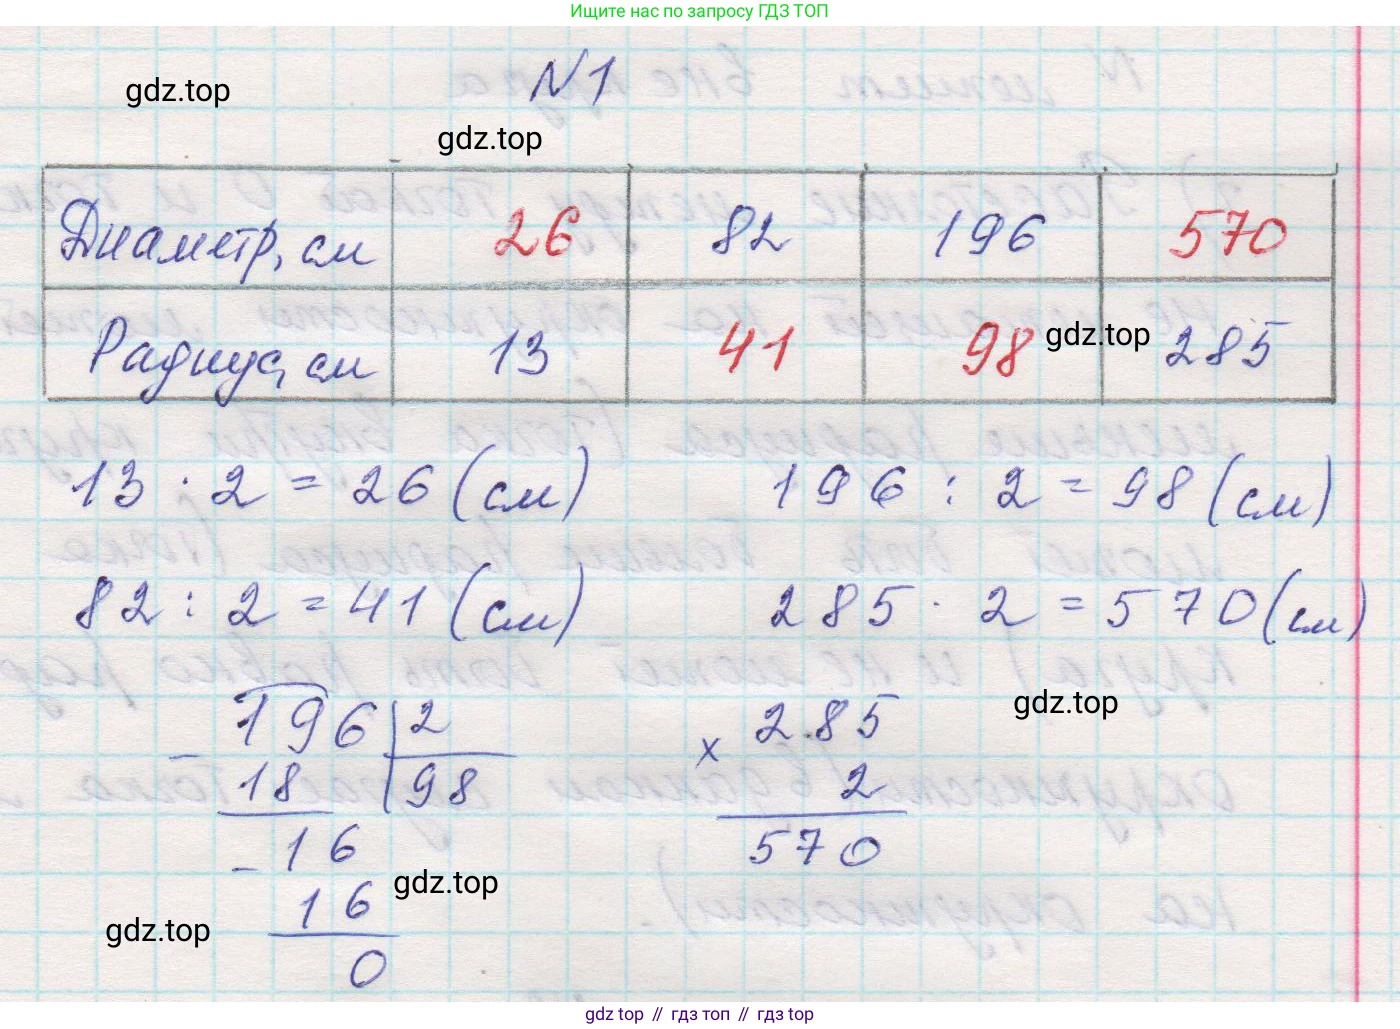 Ищите нас по запросу ГДЗ ТОП
N1
gdz.top
gdz.top
Диаметр, см 26 82 196 570
Радиус, см 13 41 98 285
gdz.top
13 · 2 = 26 (см) 196 : 2 = 98 (см)
82 : 2 = 41 (см) 285 · 2 = 570 (см)
gdz.top
196 | 2
- 18 | 98
- 16
16
0
× 285
2
570
gdz.top
gdz.top
gdz top // гдз топ // gdz top